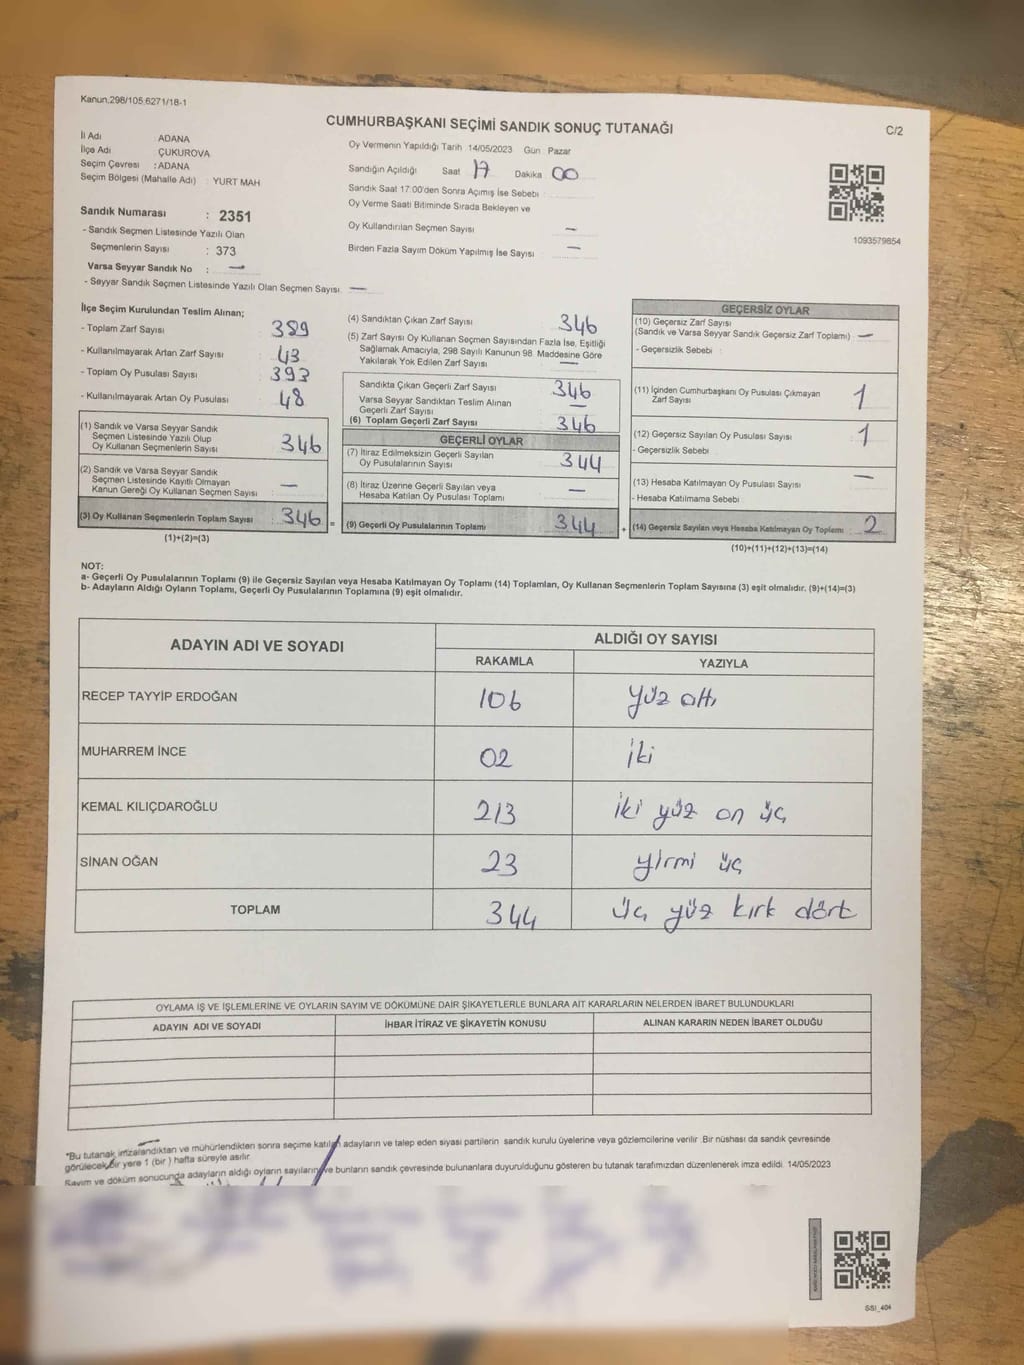 Kanun.298/105,6271/18-1
CUMHURBAŞKANI SEÇİMİ SANDIK SONUÇ TUTANAĞI
C/2
İl Adı ADANA
İlçe Adı ÇUKUROVA
Seçim Çevresi : ADANA
Seçim Bölgesi (Mahalle Adı) YURT MAH
Sandık Numarası : 2351
- Sandık Seçmen Listesinde Yazılı Olan
Seçmenlerin Sayısı : 373
Varsa Seyyar Sandık No : —
- Seyyar Sandık Seçmen Listesinde Yazılı Olan Seçmen Sayısı —
Oy Vermenin Yapıldığı Tarih 14/05/2023 Gün Pazar
Sandığın Açıldığı Saat 17 Dakika 00
Sandık Saat 17:00'den Sonra Açımış İse Sebebi
Oy Verme Saati Bitiminde Sırada Bekleyen ve
Oy Kullandırılan Seçmen Sayısı —
Birden Fazla Sayım Döküm Yapılmış İse Sayısı —
1093579854
İlçe Seçim Kurulundan Teslim Alınan;
- Toplam Zarf Sayısı 389
- Kullanılmayarak Artan Zarf Sayısı 43
- Toplam Oy Pusulası Sayısı 393
- Kullanılmayarak Artan Oy Pusulası 48
(1) Sandık ve Varsa Seyyar Sandık
Seçmen Listesinde Yazılı Olup
Oy Kullanan Seçmenlerin Sayısı 346
(2) Sandık ve Varsa Seyyar Sandık
Seçmen Listesinde Kayıtlı Olmayan
Kanun Gereği Oy Kullanan Seçmen Sayısı —
(3) Oy Kullanan Seçmenlerin Toplam Sayısı 346 =
(1)+(2)=(3)
(4) Sandıktan Çıkan Zarf Sayısı 346
(5) Zarf Sayısı Oy Kullanan Seçmen Sayısından Fazla İse, Eşitliği
Sağlamak Amacıyla, 298 Sayılı Kanunun 98. Maddesine Göre
Yakılarak Yok Edilen Zarf Sayısı —
Sandıkta Çıkan Geçerli Zarf Sayısı 346
Varsa Seyyar Sandıktan Teslim Alınan
Geçerli Zarf Sayısı —
(6) Toplam Geçerli Zarf Sayısı 346
GEÇERLİ OYLAR
(7) İtiraz Edilmeksizin Geçerli Sayılan
Oy Pusulalarının Sayısı 344
(8) İtiraz Üzerine Geçerli Sayılan veya
Hesaba Katılan Oy Pusulası Toplamı —
(9) Geçerli Oy Pusulalarının Toplamı 344 +
GEÇERSİZ OYLAR
(10) Geçersiz Zarf Sayısı
(Sandık ve Varsa Seyyar Sandık Geçersiz Zarf Toplamı) —
- Geçersizlik Sebebi :
(11) İçinden Cumhurbaşkanı Oy Pusulası Çıkmayan
Zarf Sayısı 1
(12) Geçersiz Sayılan Oy Pusulası Sayısı 1
- Geçersizlik Sebebi
(13) Hesaba Katılmayan Oy Pusulası Sayısı —
- Hesaba Katılmama Sebebi
(14) Geçersiz Sayılan veya Hesaba Katılmayan Oy Toplamı : 2
(10)+(11)+(12)+(13)=(14)
NOT:
a- Geçerli Oy Pusulalarının Toplamı (9) ile Geçersiz Sayılan veya Hesaba Katılmayan Oy Toplamı (14) Toplamları, Oy Kullanan Seçmenlerin Toplam Sayısına (3) eşit olmalıdır. (9)+(14)=(3)
b- Adayların Aldığı Oyların Toplamı, Geçerli Oy Pusulalarının Toplamına (9) eşit olmalıdır.
ADAYIN ADI VE SOYADI ALDIĞI OY SAYISI
RAKAMLA YAZIYLA
RECEP TAYYİP ERDOĞAN 106 yüz altı
MUHARREM İNCE 02 iki
KEMAL KILIÇDAROĞLU 213 iki yüz on üç
SİNAN OĞAN 23 yirmi üç
TOPLAM 344 üç yüz kırk dört
OYLAMA İŞ VE İŞLEMLERİNE VE OYLARIN SAYIM VE DÖKÜMÜNE DAİR ŞİKAYETLERLE BUNLARA AİT KARARLARIN NELERDEN İBARET BULUNDUKLARI
ADAYIN ADI VE SOYADI İHBAR İTİRAZ VE ŞİKAYETİN KONUSU ALINAN KARARIN NEDEN İBARET OLDUĞU
*Bu tutanak imzalandıktan ve mühürlendikten sonra seçime katılan adayların ve talep eden siyasi partilerin sandık kurulu üyelerine veya gözlemcilerine verilir. Bir nüshası da sandık çevresinde
görülecek bir yere 1 (bir) hafta süreyle asılır.
Sayım ve döküm sonucunda adayların aldığı oyların sayıların ve bunların sandık çevresinde bulunanlara duyurulduğunu gösteren bu tutanak tarafımızdan düzenlenerek imza edildi. 14/05/2023
SSI_404